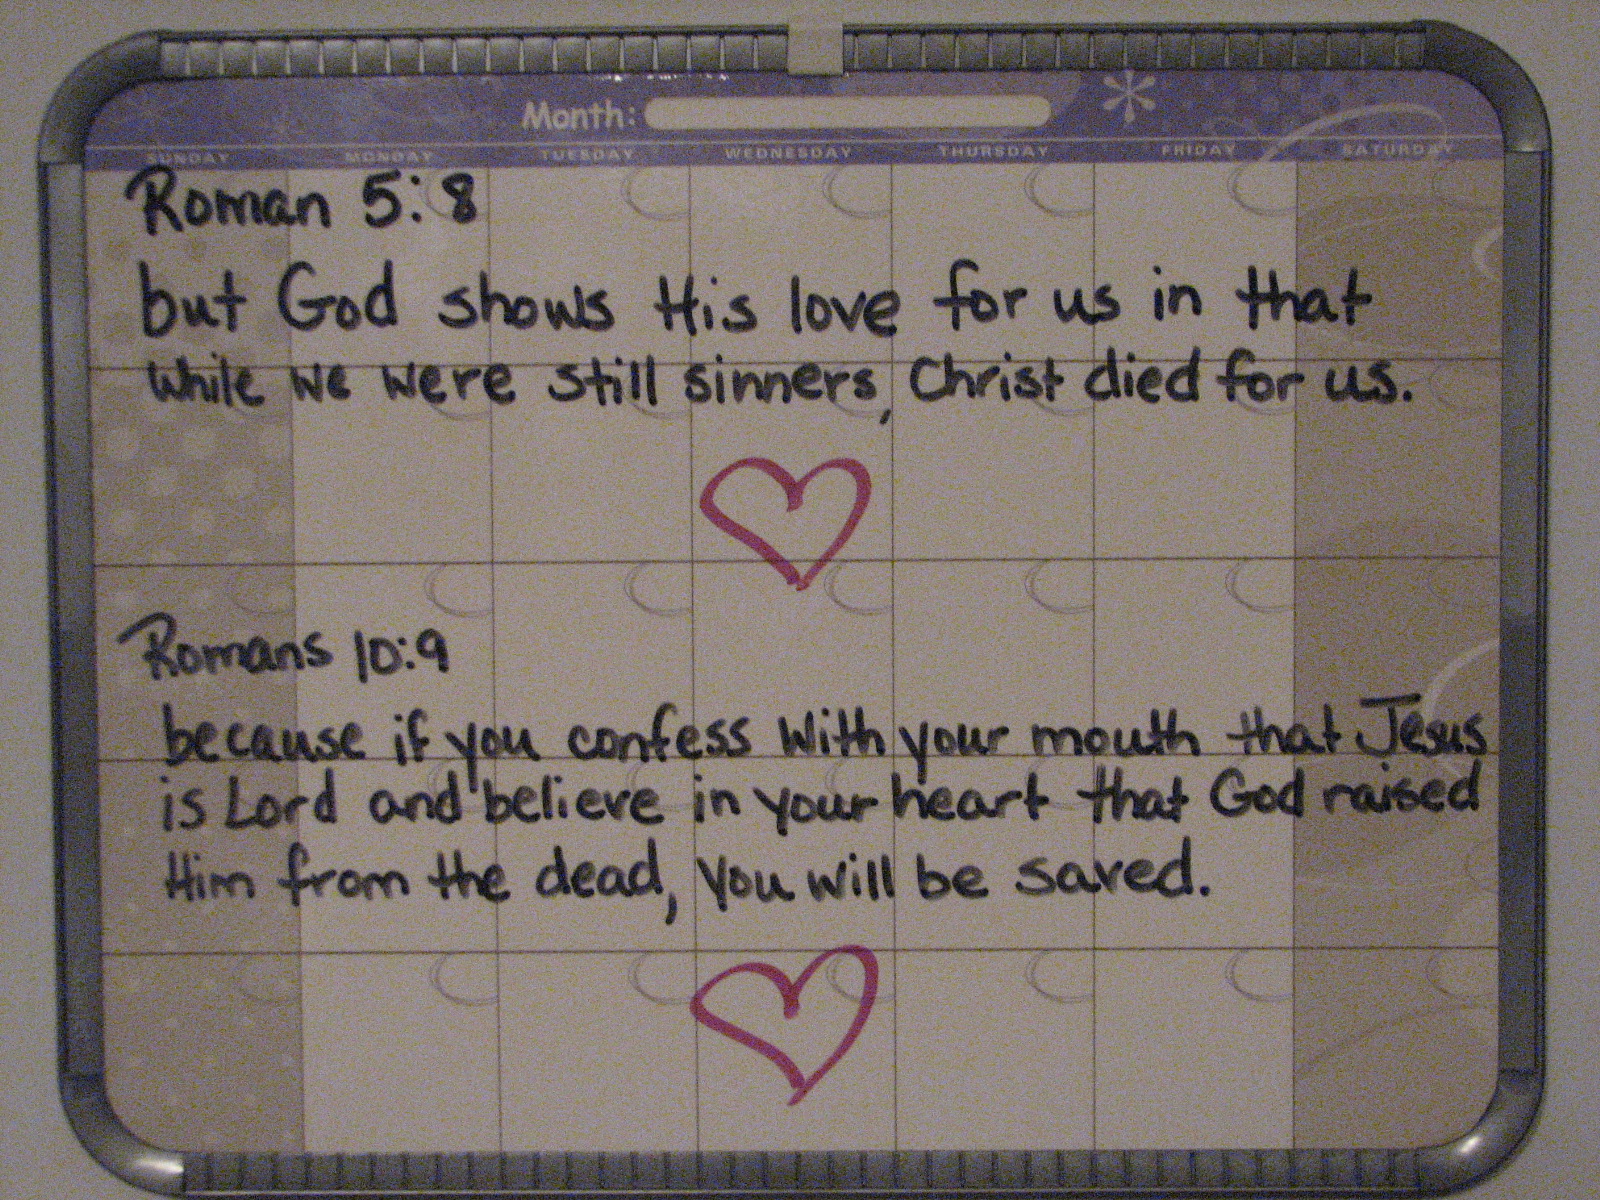 Month:
SUNDAY MONDAY TUESDAY WEDNESDAY THURSDAY FRIDAY SATURDAY
Roman 5:8
but God shows His love for us in that
while we were still sinners, Christ died for us.
Romans 10:9
because if you confess with your mouth that Jesus
is Lord and believe in your heart that God raised
Him from the dead, you will be saved.